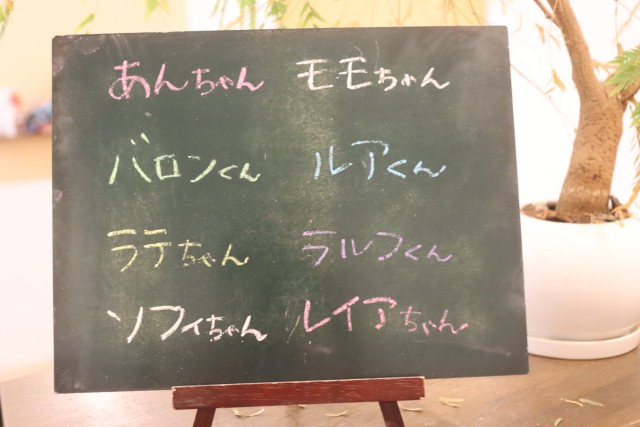 あんちゃん モモちゃん
バロンくん ルアくん
ラテちゃん ラルフくん
ソフィちゃん レイアちゃん